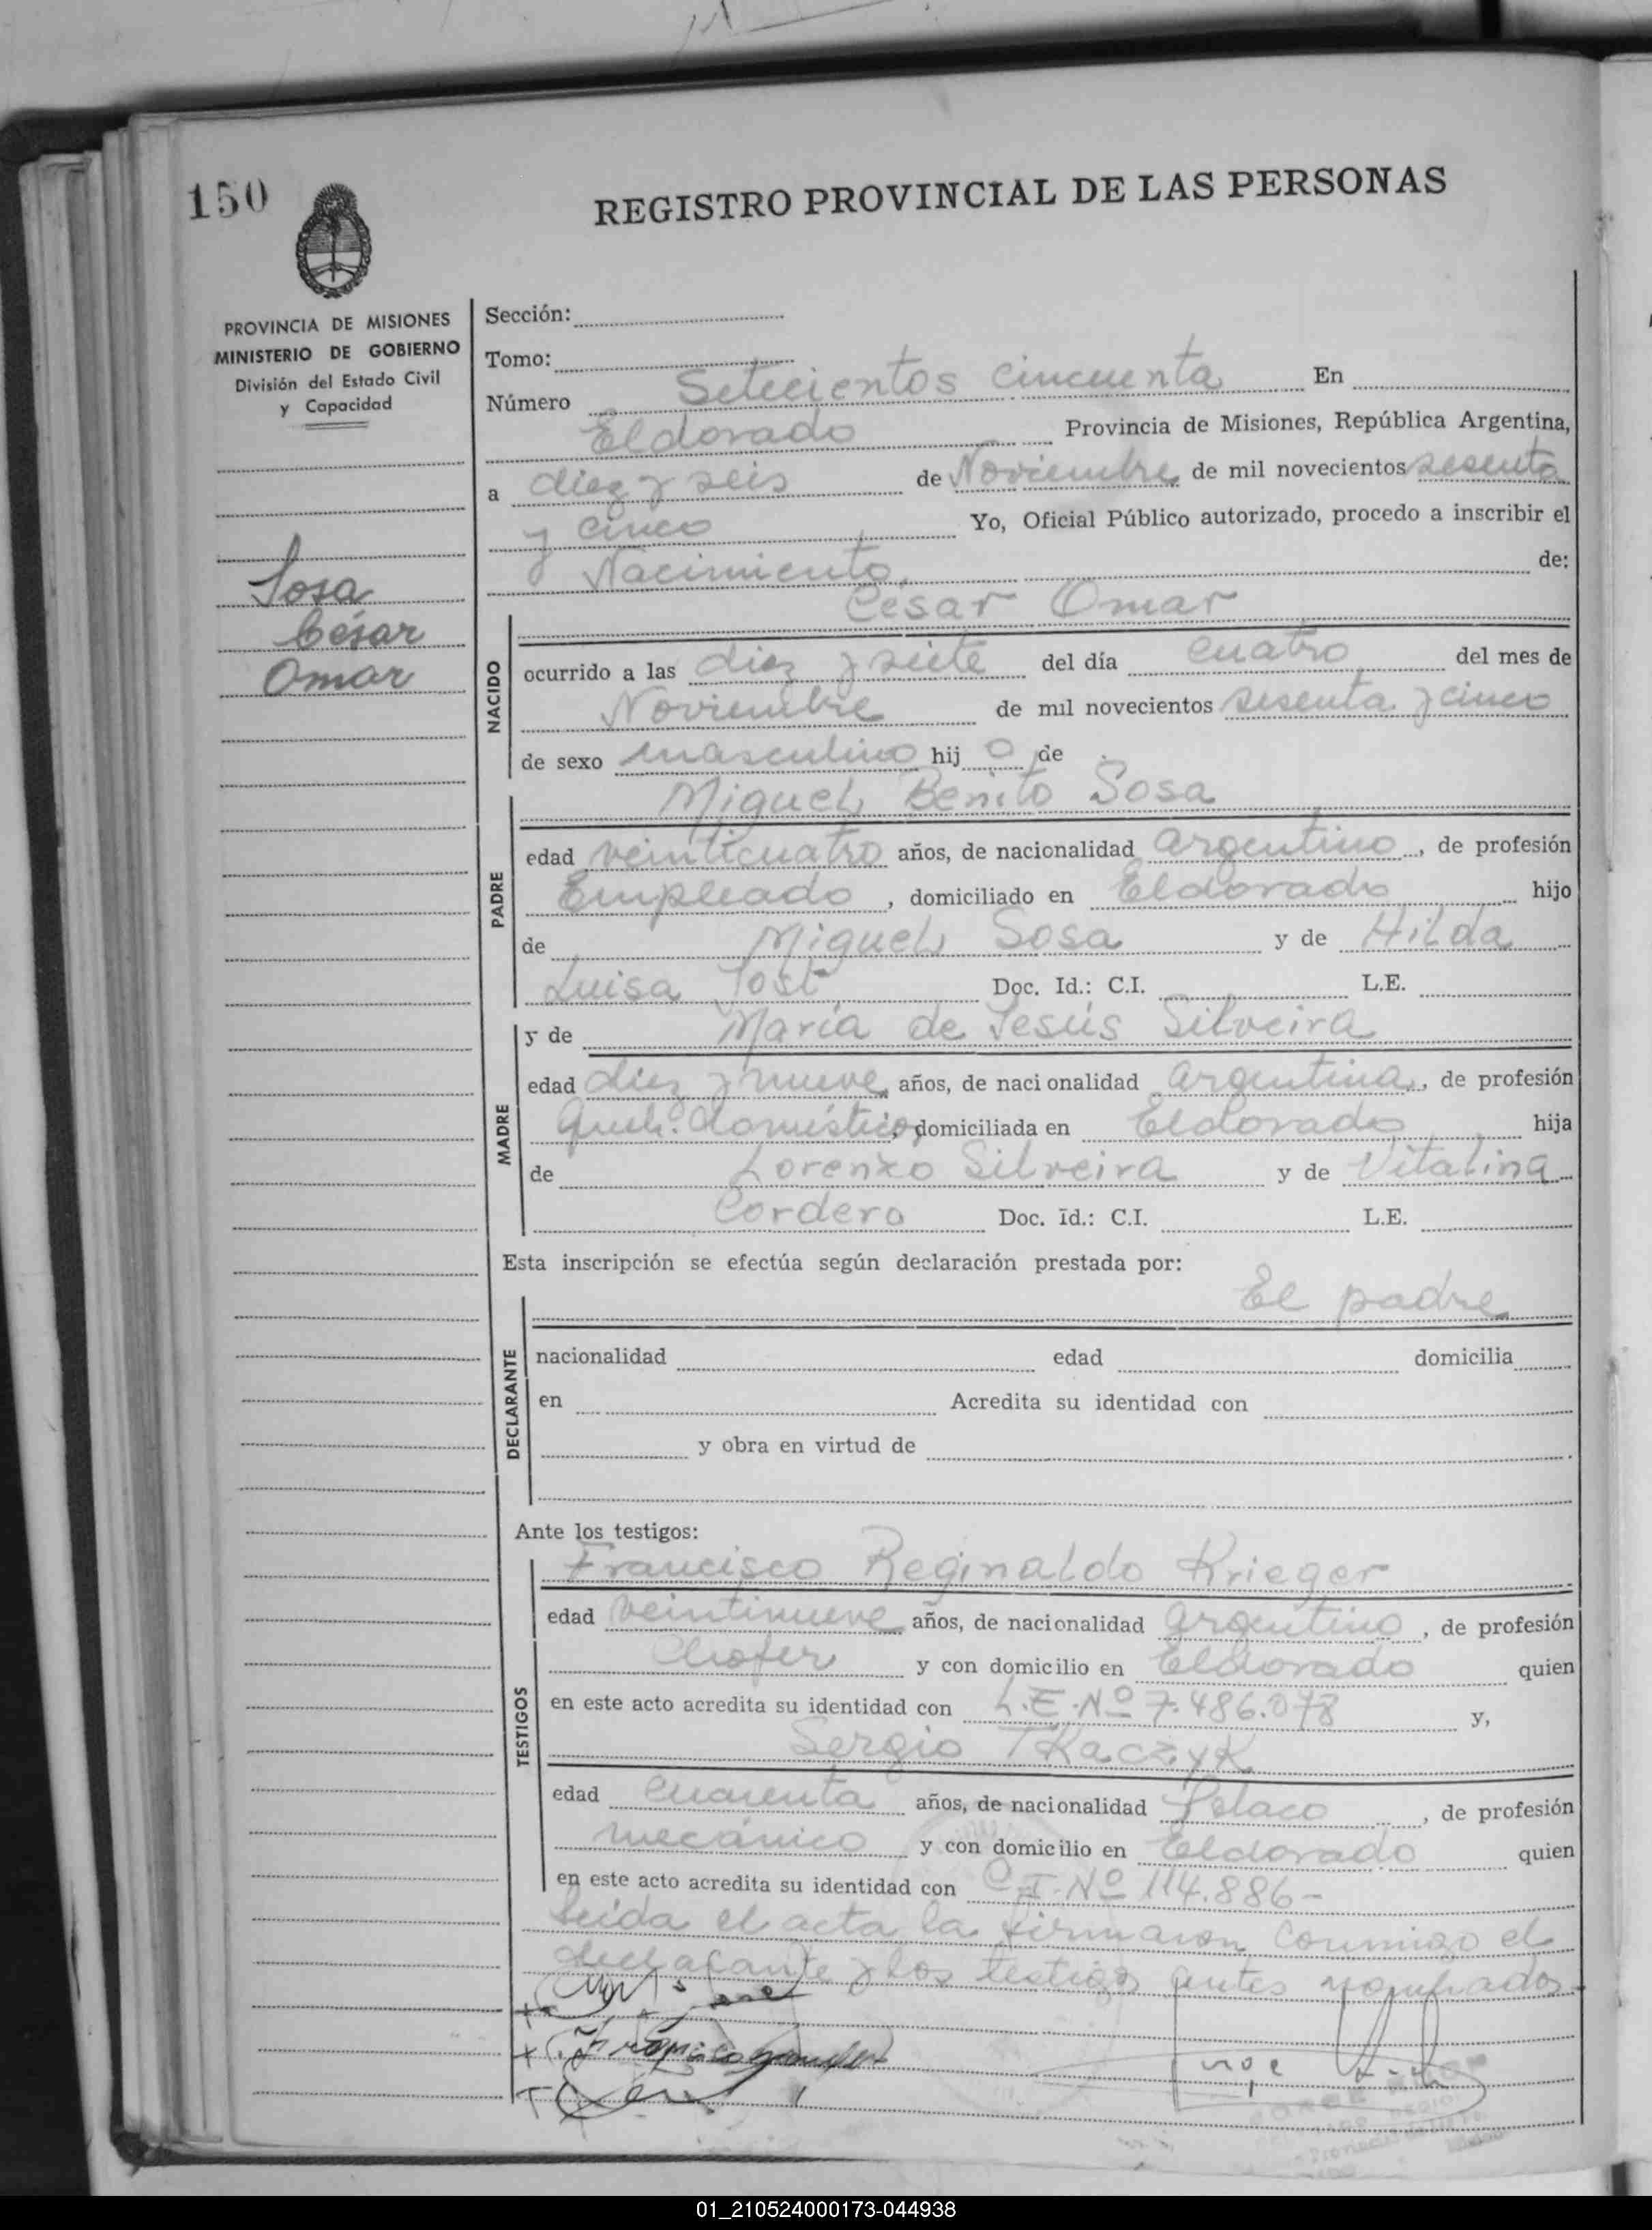 150
REGISTRO PROVINCIAL DE LAS PERSONAS
PROVINCIA DE MISIONES
MINISTERIO DE GOBIERNO
División del Estado Civil
y Capacidad
Sosa
César
Omar
Sección:
Tomo:
Número Setecientos cincuenta En
Eldorado Provincia de Misiones, República Argentina,
a diez y seis de Noviembre de mil novecientos sesenta
y cinco Yo, Oficial Público autorizado, procedo a inscribir el
Nacimiento de:
César Omar
NACIDO
ocurrido a las diez y siete del día cuatro del mes de
Noviembre de mil novecientos sesenta y cinco
de sexo masculino hij o de
Miguel Benito Sosa
PADRE
edad veinticuatro años, de nacionalidad argentino, de profesión
Empleado, domiciliado en Eldorado hijo
de Miguel Sosa y de Hilda
Luisa Jost Doc. Id.: C.I. L.E.
y de María de Jesús Silveira
MADRE
edad diez y nueve años, de nacionalidad argentina, de profesión
Queh. domésticos, domiciliada en Eldorado hija
de Lorenzo Silveira y de Vitalina
Cordero Doc. Id.: C.I. L.E.
Esta inscripción se efectúa según declaración prestada por:
El padre
DECLARANTE
nacionalidad edad domicilia
en Acredita su identidad con
y obra en virtud de
Ante los testigos:
Francisco Reginaldo Krieger
TESTIGOS
edad veintinueve años, de nacionalidad argentino, de profesión
Chofer y con domicilio en Eldorado quien
en este acto acredita su identidad con L.E.Nº 7.486.078 y,
Sergio TKaczyK
edad cuarenta años, de nacionalidad Polaco, de profesión
mecánico y con domicilio en Eldorado quien
en este acto acredita su identidad con C.I.Nº 114.886-
Leída el acta la firmaron conmigo el
declarante y los testigos antes nombrados.
01_210524000173-044938